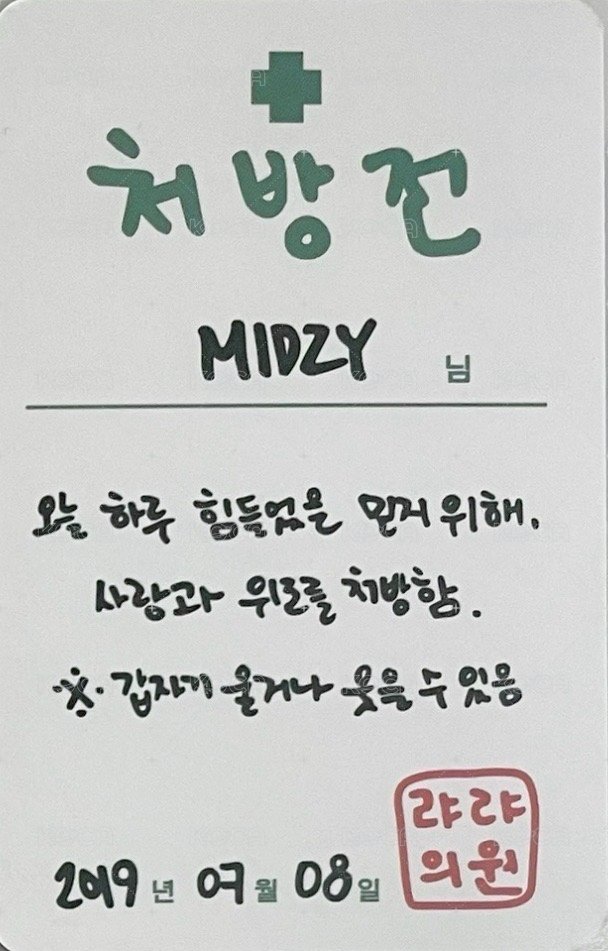 처방전
MIDZY 님
오늘 하루 힘들었을 믿지 위해.
사랑과 위로를 처방함.
※. 갑자기 울거나 웃을 수 있음
2019년 07월 08일
랴랴
의원